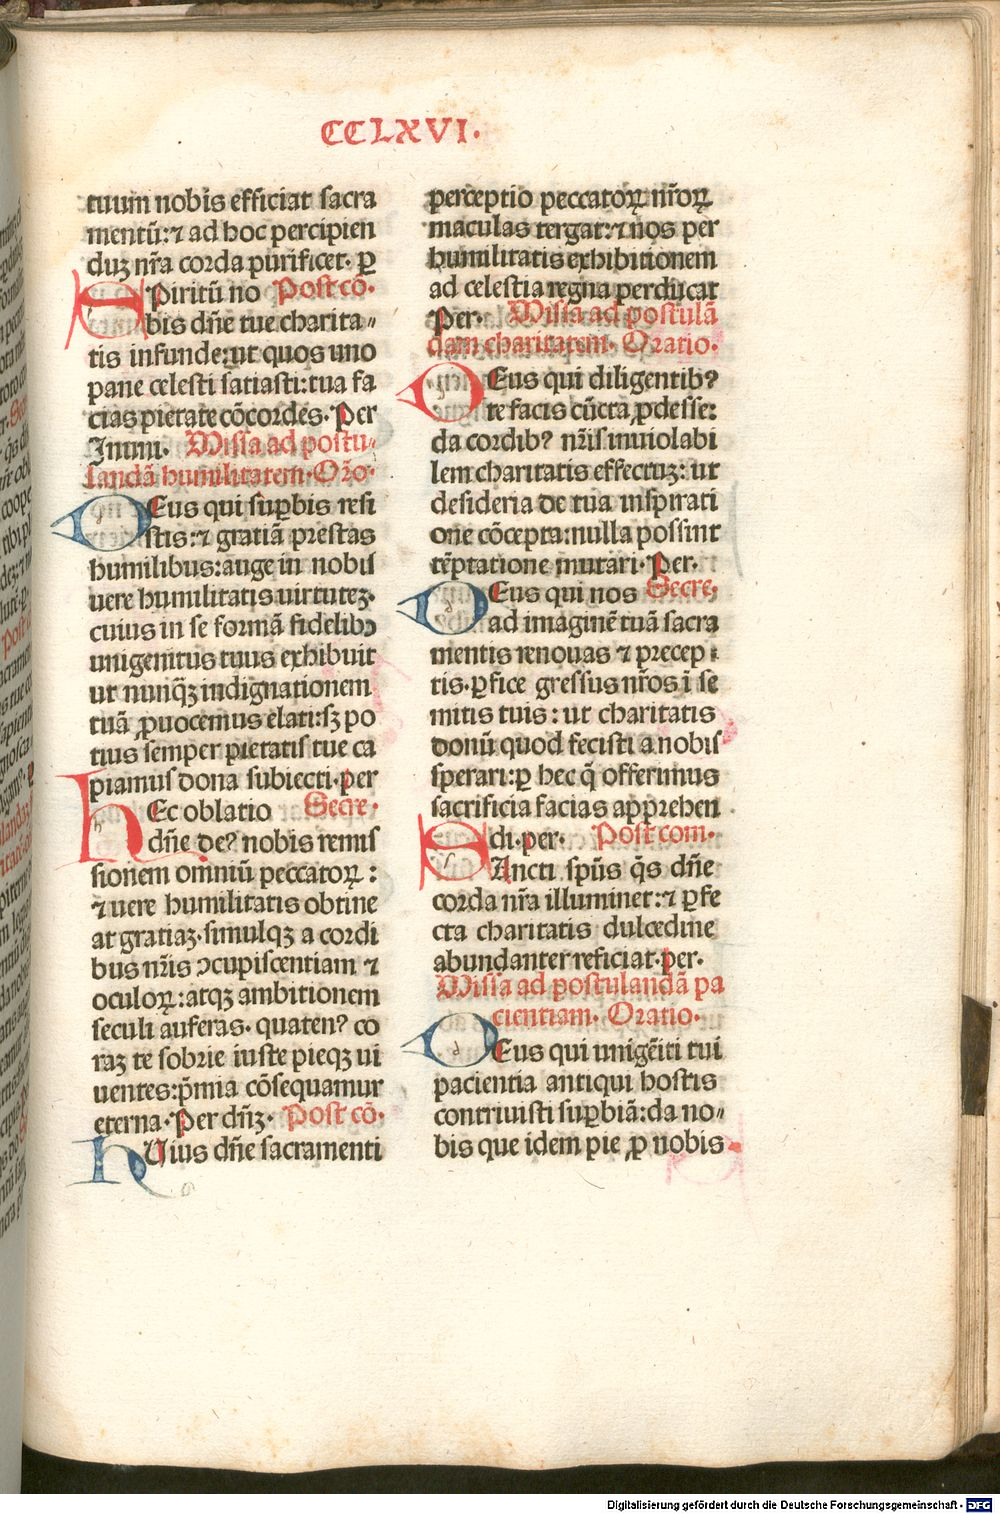 CCLXVI.
tuum nobis efficiat sacra
mentū: ⁊ ad hoc percipien
duꝫ nr̄a corda purificet. ꝑ
SPiritū no Post cō.
bis dn̄e tue charita⸗
tis infunde: ut quos uno
pane celesti satiasti: tua fa
cias pietate cōcordes. Per
Jnuni. Missa ad postu⸗
landā humilitatem. Or̄o.
DEus qui suꝑbis resi
stis: ⁊ gratiā prestas
humilibus: auge in nobis
uere humilitatis uirtuteꝫ.
cuius in se formā fidelibꝰ
unigenitus tuus exhibuit
ut nunqꝫ indignationem
tuā ꝓuocemus elati: sꝫ po
tius semper pietatis tue ca
piamus dona subiecti. per
HEc oblatio Secre.
dn̄e deꝰ nobis remis
sionem omniū peccatoꝝ:
⁊ uere humilitatis obtine
at gratiaꝫ. simulqꝫ a cordi
bus nr̄is ꝯcupiscentiam ⁊
oculoꝝ: atqꝫ ambitionem
seculi auferas. quatenꝰ co
raꝫ te sobrie iuste pieqꝫ ui
uentes: p̄mia cōsequamur
eterna. Per dn̄ꝫ. Post cō.
HUius dn̄e sacramenti
perceptio peccatoꝝ nr̄oꝝ
maculas tergat: ⁊ nos per
humilitatis exhibitionem
ad celestia regna perducat
Per. Missa ad postulā
dam charitatem. Oratio.
DEus qui diligentibꝰ
te facis cūcta ꝓdesse:
da cordibꝰ nr̄is inuiolabi
lem charitatis effectuꝫ: ut
desideria de tua inspirati
one cōcepta: nulla possint
tēptatione mutari. Per.
DEus qui nos Secre.
ad imaginē tuā sacra
mentis renouas ⁊ precep⸗
tis. ꝑfice gressus nr̄os ī se
mitis tuis: ut charitatis
donū quod fecisti a nobis
sperari: ꝑ hec q̄ offerimus
sacrificia facias apprehen
di. per. Post com.
SAncti sp̄us q̄s dn̄e
corda nr̄a illuminet: ⁊ ꝑfe
cta charitatis dulcedine
abundanter reficiat. per.
Missa ad postulandā pa
cientiam. Oratio.
DEus qui unigēiti tui
pacientia antiqui hostis
contriuisti suꝑbiā: da no⸗
bis que idem pie ꝓ nobis
Digitalisierung gefördert durch die Deutsche Forschungsgemeinschaft - DFG